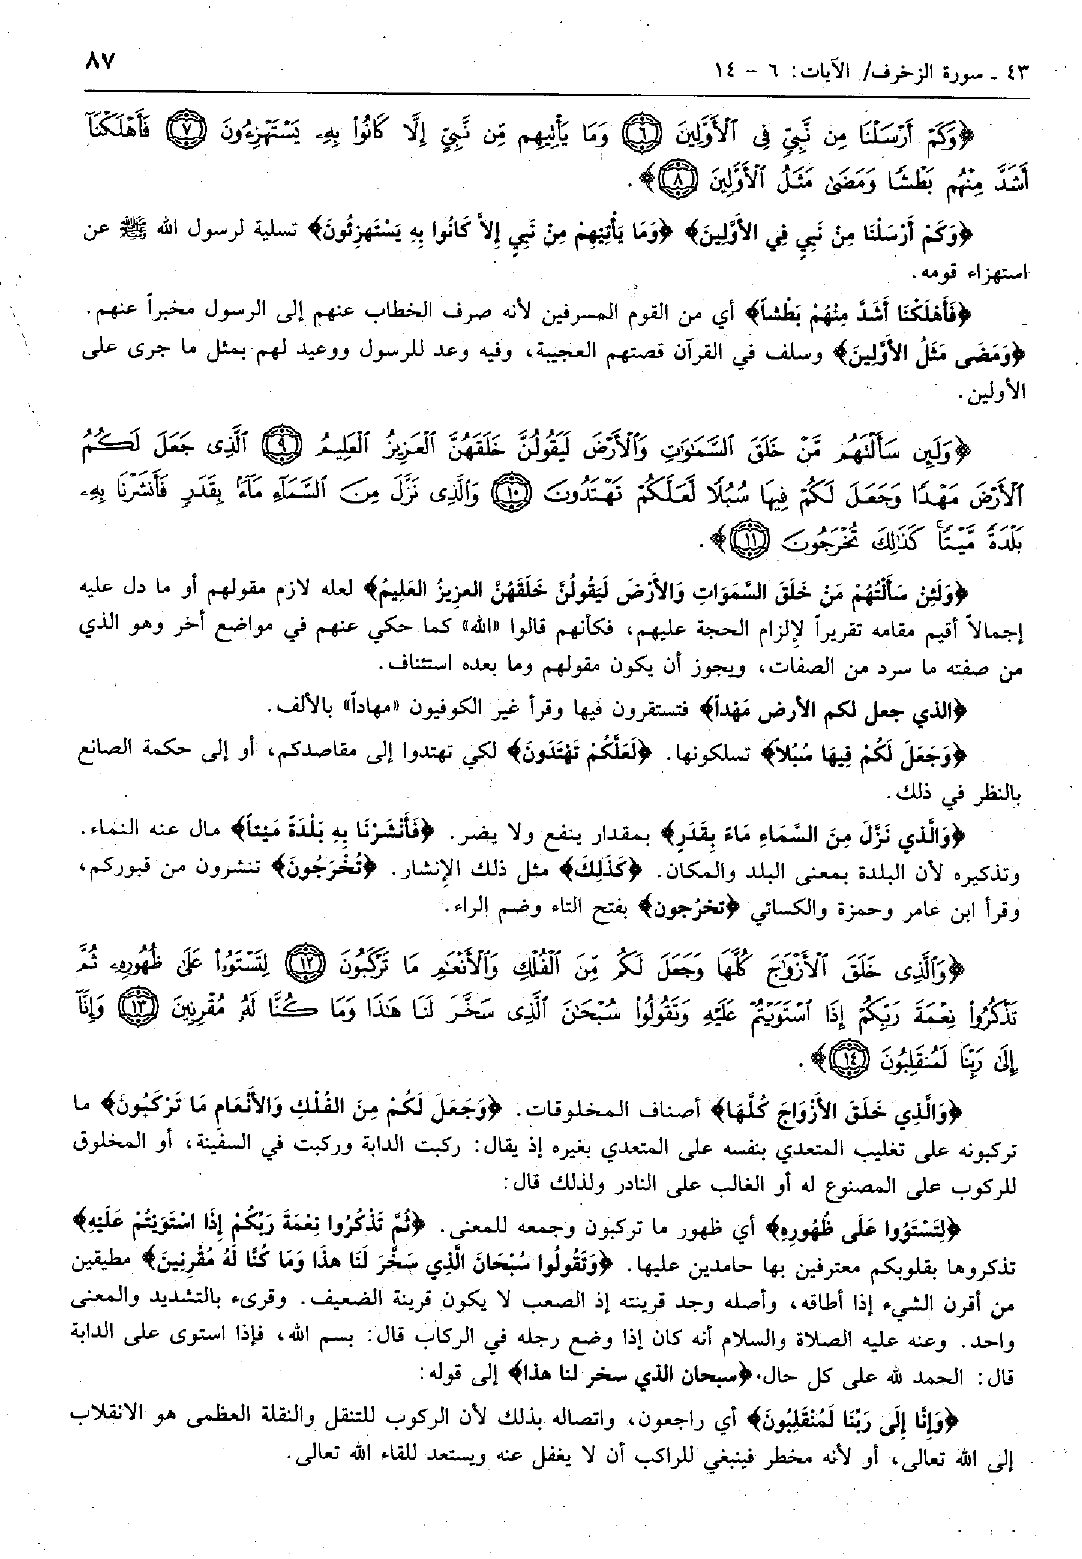 ٤٣ ـ سورة الزخرف/ الآيات: ٦ - ١٤
٨٧
﴿وَكَمْ أَرْسَلْنَا مِن نَّبِيٍّ فِى ٱلْأَوَّلِينَ ٦ وَمَا يَأْتِيهِم مِّن نَّبِيٍّ إِلَّا كَانُوا۟ بِهِۦ يَسْتَهْزِءُونَ ٧ فَأَهْلَكْنَآ
أَشَدَّ مِنْهُم بَطْشًا وَمَضَىٰ مَثَلُ ٱلْأَوَّلِينَ ٨﴾.
﴿وَكَمْ أَرْسَلْنَا مِنْ نَبِيٍّ فِي الأَوَّلِينَ﴾ ﴿وَمَا يَأْتِيهِمْ مِنْ نَبِيٍ إِلاَّ كَانُوا بِهِ يَسْتَهْزِئُونَ﴾ تسلية لرسول الله ﷺ عن
استهزاء قومه.
﴿فَأَهْلَكْنَا أَشَدَّ مِنْهُمْ بَطْشاً﴾ أي من القوم المسرفين لأنه صرف الخطاب عنهم إلى الرسول مخبراً عنهم.
﴿وَمَضَى مَثَلُ الأَوَّلِينَ﴾ وسلف في القرآن قصتهم العجيبة، وفيه وعد للرسول ووعيد لهم بمثل ما جرى على
الأولين.
﴿وَلَئِن سَأَلْتَهُم مَّنْ خَلَقَ ٱلسَّمَٰوَٰتِ وَٱلْأَرْضَ لَيَقُولُنَّ خَلَقَهُنَّ ٱلْعَزِيزُ ٱلْعَلِيمُ ٩ ٱلَّذِى جَعَلَ لَكُمُ
ٱلْأَرْضَ مَهْدًا وَجَعَلَ لَكُمْ فِيهَا سُبُلًا لَّعَلَّكُمْ تَهْتَدُونَ ١٠ وَٱلَّذِى نَزَّلَ مِنَ ٱلسَّمَآءِ مَآءًۢ بِقَدَرٍ فَأَنشَرْنَا بِهِۦ
بَلْدَةً مَّيْتًا ۚ كَذَٰلِكَ تُخْرَجُونَ ١١﴾.
﴿وَلَئِنْ سَأَلْتَهُمْ مَنْ خَلَقَ السَّمَوَاتِ وَالأَرْضَ لَيَقُولُنَّ خَلَقَهُنَّ العَزِيزُ العَلِيمُ﴾ لعله لازم مقولهم أو ما دل عليه
إجمالاً أقيم مقامه تقريراً لإلزام الحجة عليهم، فكأنهم قالوا «الله» كما حكي عنهم في مواضع أخر وهو الذي
من صفته ما سرد من الصفات، ويجوز أن يكون مقولهم وما بعده استئناف.
﴿الذي جعل لكم الأرض مَهْداً﴾ فتستقرون فيها وقرأ غير الكوفيون «مهاداً» بالألف.
﴿وَجَعَلَ لَكُمْ فِيهَا سُبُلاً﴾ تسلكونها. ﴿لَعَلَّكُمْ تَهْتَدُونَ﴾ لكي تهتدوا إلى مقاصدكم، أو إلى حكمة الصانع
بالنظر في ذلك.
﴿وَالَّذِي نَزَّلَ مِنَ السَّمَاءِ مَاءً بِقَدَرٍ﴾ بمقدار ينفع ولا يضر. ﴿فَأَنْشَرْنَا بِهِ بَلْدَةً مَيْتاً﴾ مال عنه النماء.
وتذكيره لأن البلدة بمعنى البلد والمكان. ﴿كَذَلِكَ﴾ مثل ذلك الإنشار. ﴿تُخْرَجُونَ﴾ تنشرون من قبوركم،
وقرأ ابن عامر وحمزة والكسائي ﴿تخرُجون﴾ بفتح التاء وضم الراء.
﴿وَٱلَّذِى خَلَقَ ٱلْأَزْوَٰجَ كُلَّهَا وَجَعَلَ لَكُم مِّنَ ٱلْفُلْكِ وَٱلْأَنْعَٰمِ مَا تَرْكَبُونَ ١٢ لِتَسْتَوُۥا۟ عَلَىٰ ظُهُورِهِۦ ثُمَّ
تَذْكُرُوا۟ نِعْمَةَ رَبِّكُمْ إِذَا ٱسْتَوَيْتُمْ عَلَيْهِ وَتَقُولُوا۟ سُبْحَٰنَ ٱلَّذِى سَخَّرَ لَنَا هَٰذَا وَمَا كُنَّا لَهُۥ مُقْرِنِينَ ١٣ وَإِنَّآ
إِلَىٰ رَبِّنَا لَمُنقَلِبُونَ ١٤﴾.
﴿وَالَّذِي خَلَقَ الأَزْوَاجَ كُلَّهَا﴾ أصناف المخلوقات. ﴿وَجَعَلَ لَكُمْ مِنَ الفُلْكِ وَالأَنْعَامِ مَا تَرْكَبُونَ﴾ ما
تركبونه على تغليب المتعدي بنفسه على المتعدي بغيره إذ يقال: ركبت الدابة وركبت في السفينة، أو المخلوق
للركوب على المصنوع له أو الغالب على النادر ولذلك قال:
﴿لِتَسْتَوُوا عَلَى ظُهُورِهِ﴾ أي ظهور ما تركبون وجمعه للمعنى. ﴿ثُمَّ تَذْكُرُوا نِعْمَةَ رَبِّكُمْ إِذَا اسْتَوَيْتُمْ عَلَيْهِ﴾
تذكروها بقلوبكم معترفين بها حامدين عليها. ﴿وَتَقُولُوا سُبْحَانَ الَّذِي سَخَّرَ لَنَا هذَا وَمَا كُنَّا لَهُ مُقْرِنِينَ﴾ مطيقين
من أقرن الشيء إذا أطاقه، وأصله وجد قرينته إذ الصعب لا يكون قرينة الضعيف. وقرىء بالتشديد والمعنى
واحد. وعنه عليه الصلاة والسلام أنه كان إذا وضع رجله في الركاب قال: بسم الله، فإذا استوى على الدابة
قال: الحمد لله على كل حال. ﴿سبحان الذي سخر لنا هذا﴾ إلى قوله:
﴿وَإِنَّا إِلَى رَبِّنَا لَمُنْقَلِبُونَ﴾ أي راجعون، واتصاله بذلك لأن الركوب للتنقل والنقلة العظمى هو الانقلاب
إلى الله تعالى، أو لأنه مخطر فينبغي للراكب أن لا يغفل عنه ويستعد للقاء الله تعالى.